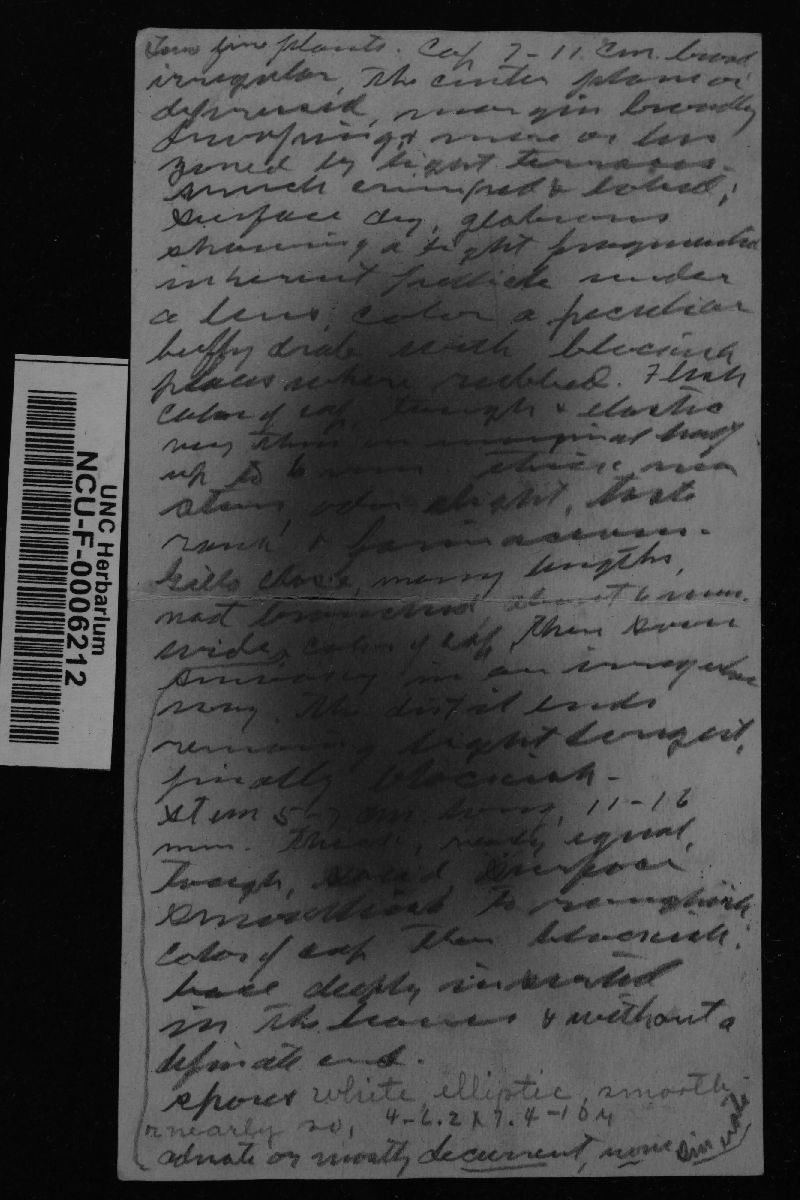 Two fine plants. Cap 7-11 cm. broad
irregular, the center plane or
depressed, margin broadly
drooping & more or less
zoned by light terraces.
much crimped & lobed;
surface dry, glabrous
showing a tight fragmented
inherent pellicle under
a lens; color a peculiar
buffy drab with blackish
places where rubbed. Flesh
color of cap, tough & elastic
very thin in marginal half
up to 6 mm thick near
stem, odor slight, taste
rank & farinaceous.
Gills close, many lengths,
not branched, about 6 mm.
wide, color of cap, then soon
smoky in an irregular
way. the distal ends
remaining light longest,
finally blackish.
Stem 5-7 cm. long, 11-16
mm. thick, nearly equal,
tough, solid, surface
smoothish to roughish
color of cap then blackish;
base deeply inserted
in the leaves & without a
definate end.
spores white, elliptic, smooth
or nearly so, 4-6.2 x 7.4-10 µ
adnate or mostly decurrent, none sinuate
UNC Herbarium
NCU-F-0006212